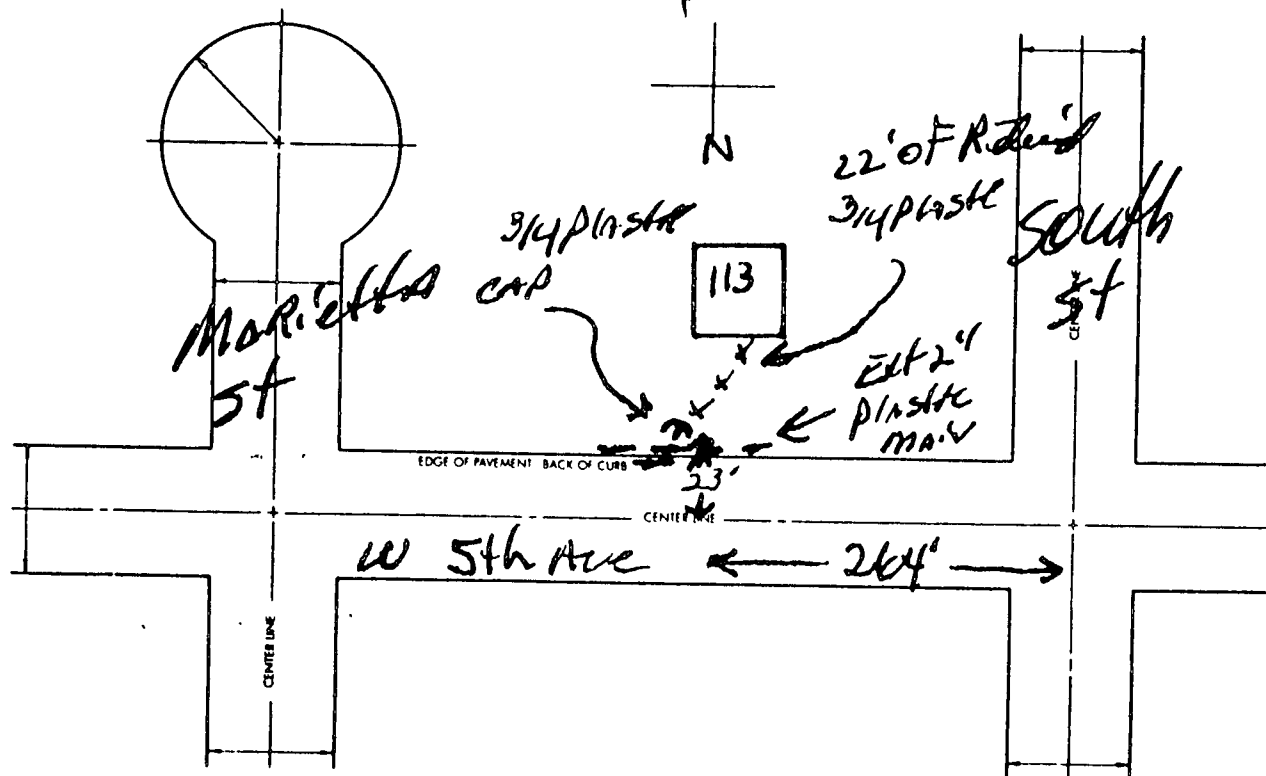 N
22' of Retired
3/4 Plastic
3/4 Plastic
CAP
113
South
St
Marietta
St
Ext 2"
Plastic
Main
EDGE OF PAVEMENT BACK OF CURB
23'
CENTER LINE
W 5th Ave
264'
CENTER LINE